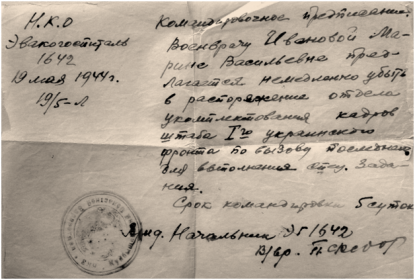 Н.К.О
Эвакогоспиталь
1642
19 мая 1944г.
19/5-Л
Командировочное предписание.
Военврачу Ивановой Ма-
рине Васильевне пред-
лагается немедленно убыть
в распоряжение отдела
укомплектования кадров
штаба Iго украинского
фронта по вызову последнего
для выполнения спец. зада-
ния.
Срок командировки 5 суток
Начальник ЭГ 1642